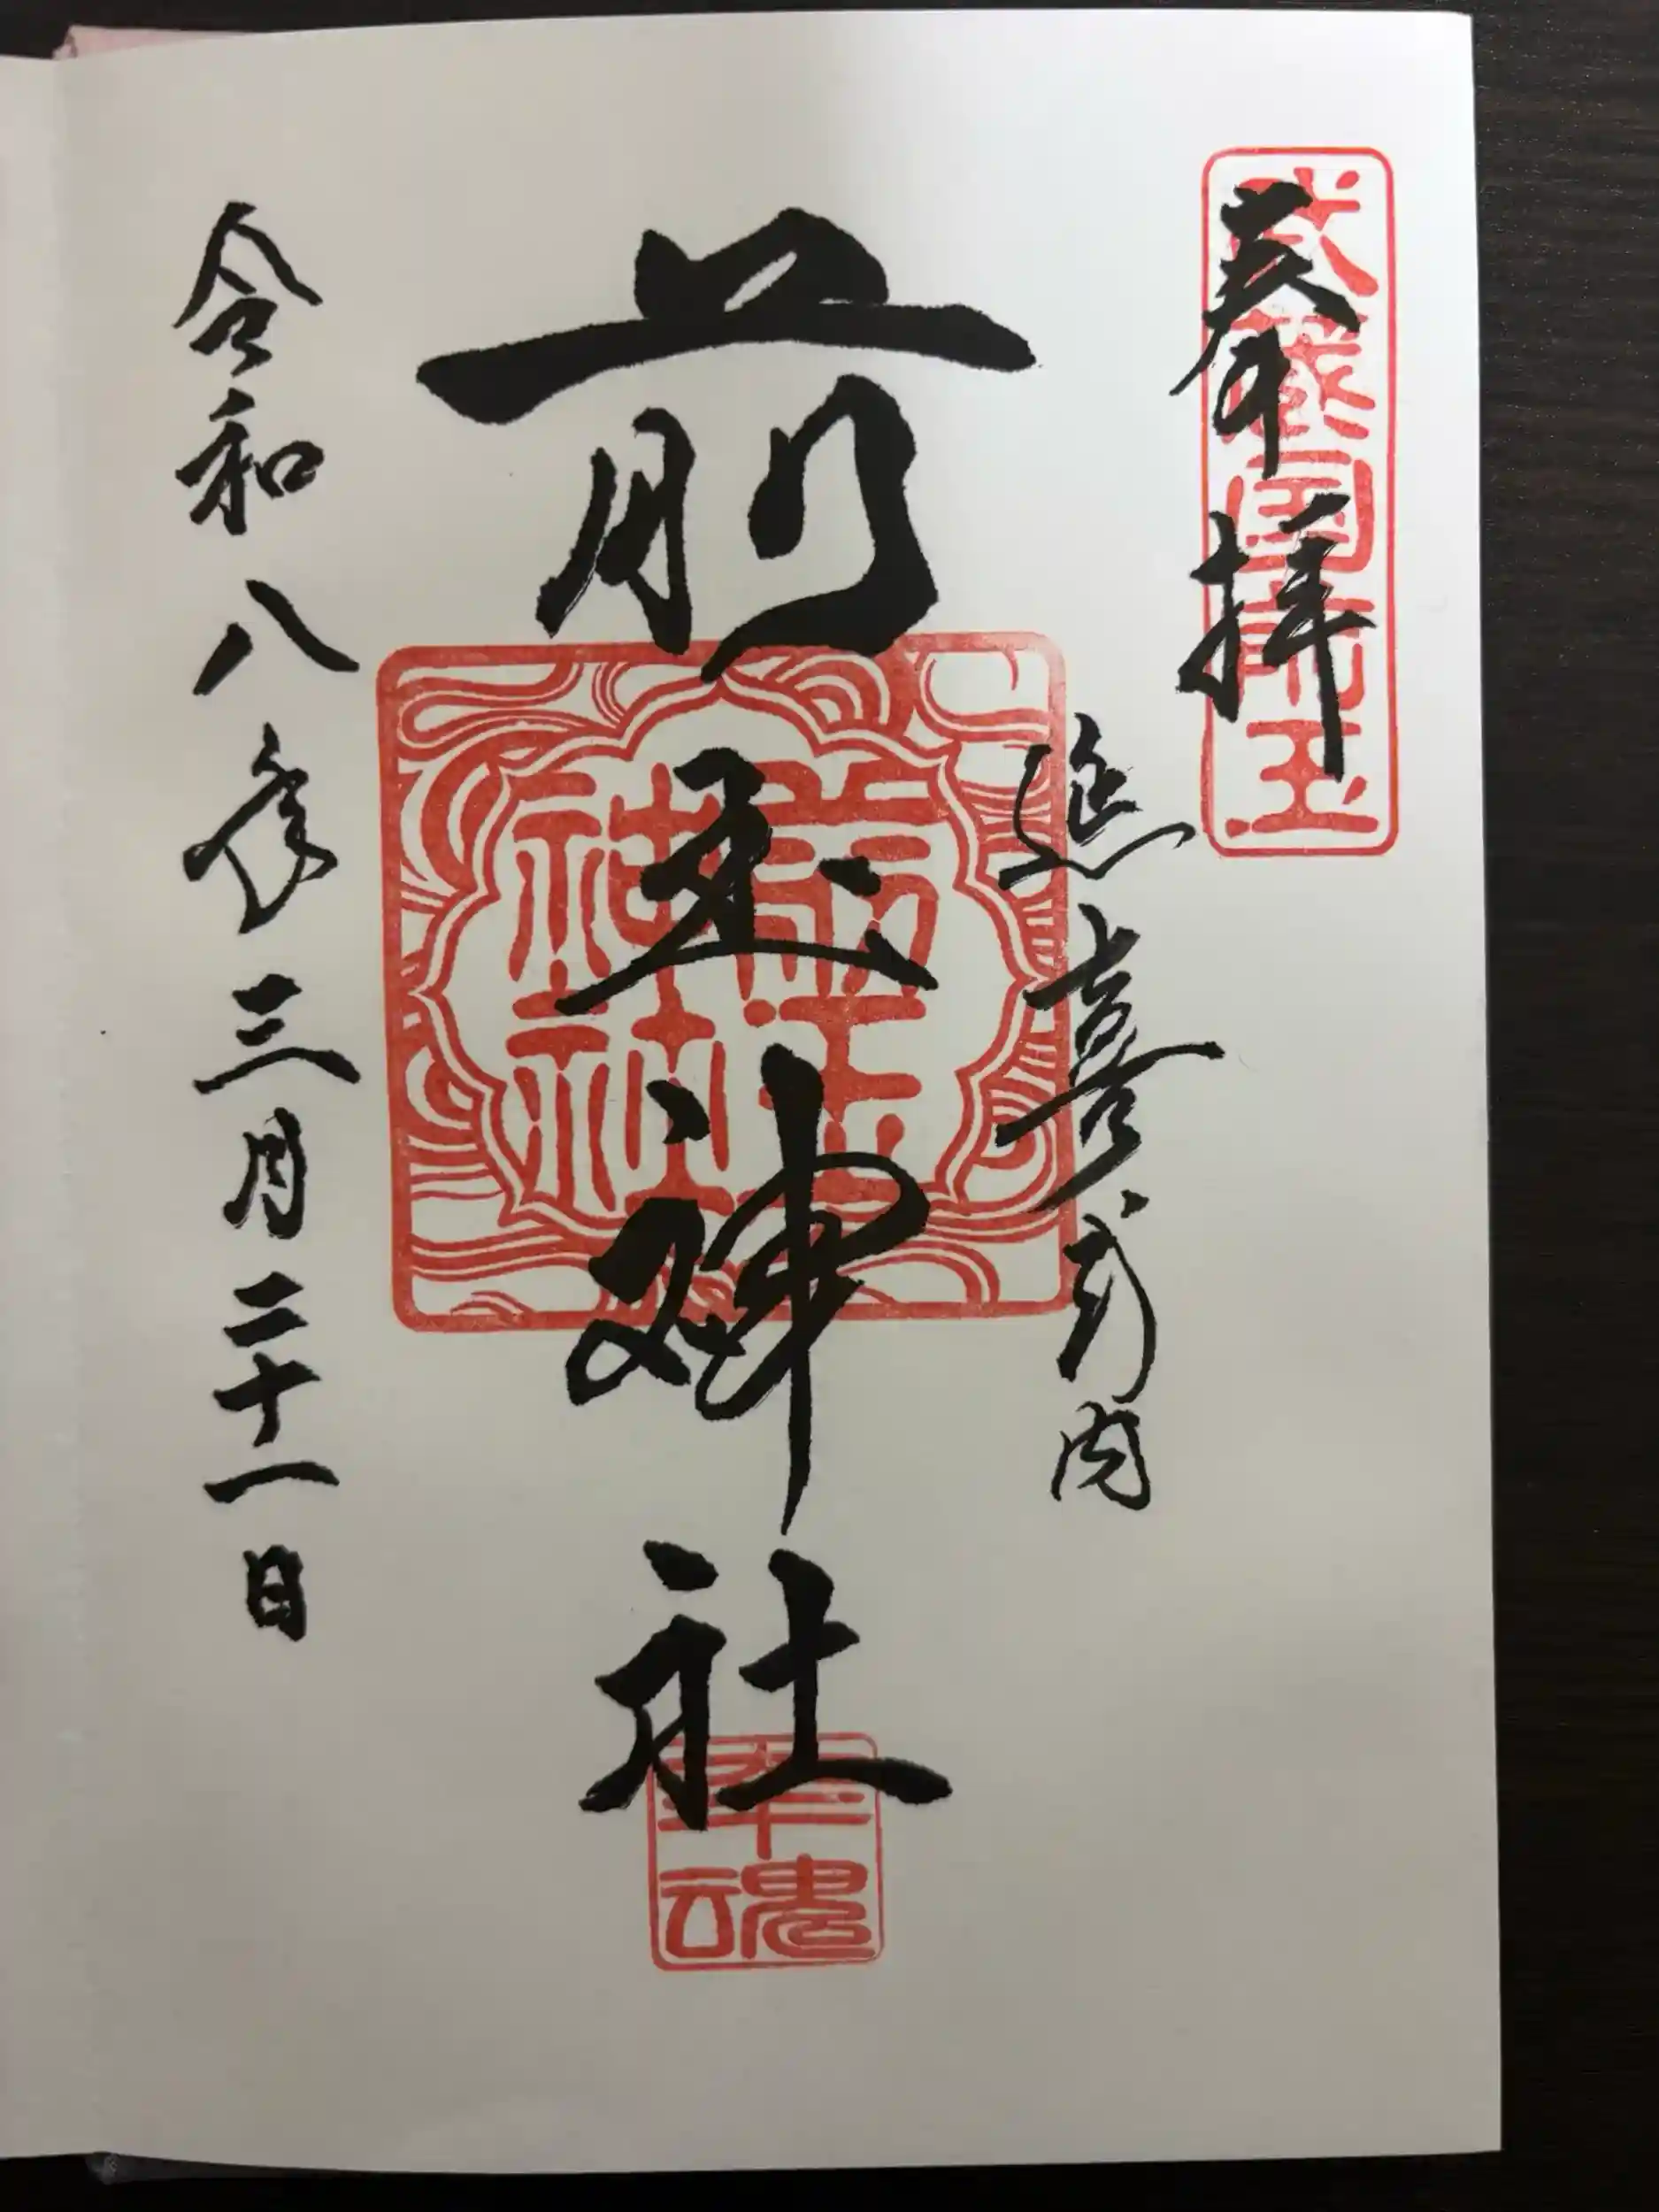 奉拝
武蔵国前玉
延喜式内
前玉神社
前玉神社
幸魂
令和八年三月二十一日